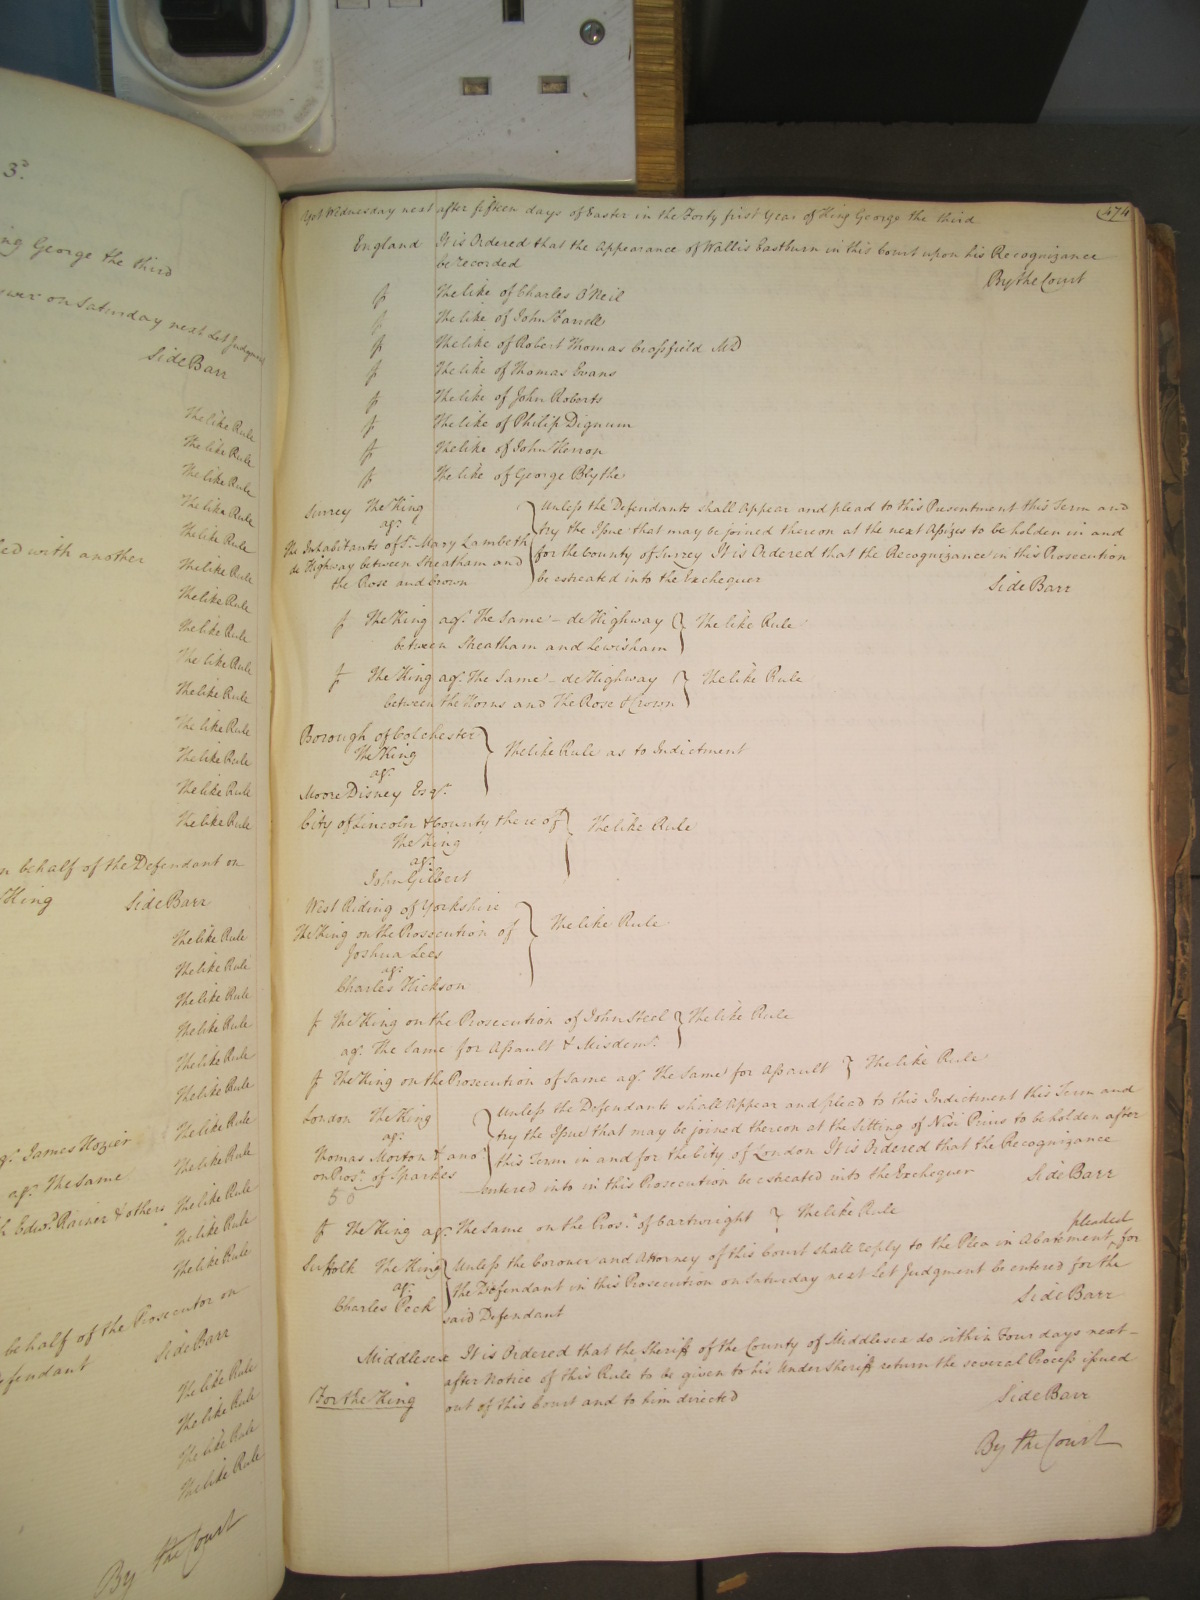 3d.
ng George the third
wer on Saturday next Let Judgment
Side Barr
The like Rule
The like Rule
The like Rule
The like Rule
The like Rule
ed with another The like Rule
The like Rule
The like Rule
The like Rule
The like Rule
The like Rule
The like Rule
The like Rule
The like Rule
n behalf of the Defendant on
King Side Barr
The like Rule
The like Rule
The like Rule
The like Rule
The like Rule
The like Rule
agt. James Hozier The like Rule
agt. The same The like Rule
Edwd. Rainer & others The like Rule
The like Rule
The like Rule
behalf of the Prosecutor on
efendant Side Barr
The like Rule
The like Rule
The like Rule
The like Rule
By the Court
474
Yet Wednesday next after fifteen days of Easter in the Forty first Year of King George the third
England It is Ordered that the Appearance of Wallis Eastburn in this Court upon his Recognizance
be recorded By the Court
ss The like of Charles O'Neil
ss The like of John Farrell
ss The like of Robert Thomas Crossfield MD
ss The like of Thomas Evans
ss The like of John Roberts
ss The like of Philip Dignum
ss The like of John Herron
ss The like of George Blythe
Surrey The King
agt.
The Inhabitants of St. Mary Lambeth
de Highway between Streatham and
the Rose and Crown
Unless the Defendants shall Appear and plead to this Presentment this Term and
try the Issue that may be joined thereon at the next Assizes to be holden in and
for the County of Surrey It is Ordered that the Recognizance in this Prosecution
be estreated into the Exchequer Side Barr
ss The King agt. The Same – de Highway
between Streatham and Lewisham } The like Rule
ss The King agt. The Same – de Highway
between the Horns and The Rose & Crown } The like Rule
Borough of Colchester
The King
agt.
Moore Disney Esqr.
The like Rule as to Indictment
City of Lincoln & County there of
The King
agt.
John Gilbert
The like Rule
West Riding of Yorkshire
The King on the Prosecution of
Joshua Lees
agt.
Charles Hickson
The like Rule
ss The King on the Prosecution of John Steel
agt. The Same for Assault & Misdemr. } The like Rule
ss The King on the Prosecution of Same agt. The Same for Assault } The like Rule
London The King
agt.
Thomas Morton & anor.
on Prosn. of Sparkes
Unless the Defendants shall Appear and plead to this Indictment this Term and
try the Issue that may be joined thereon at the Sitting of Nisi Prius to be holden after
this Term in and for the City of London It is Ordered that the Recognizance
entered into in this Prosecution be estreated into the Exchequer Side Barr
ss The King agt. The Same on the Prosn. of Cartwright } The like Rule
Suffolk The King
agt.
Charles Peck
Unless the Coroner and Attorney of this Court shall reply to the Plea in Abatement pleaded for
the Defendant in this Prosecution on Saturday next Let Judgment be entered for the
said Defendant Side Barr
Middlesex It is Ordered that the Sheriff of the County of Middlesex do within Four days next
after Notice of this Rule to be given to his Undersheriff return the several Process issued
For the King out of this Court and to him directed Side Barr
By the Court